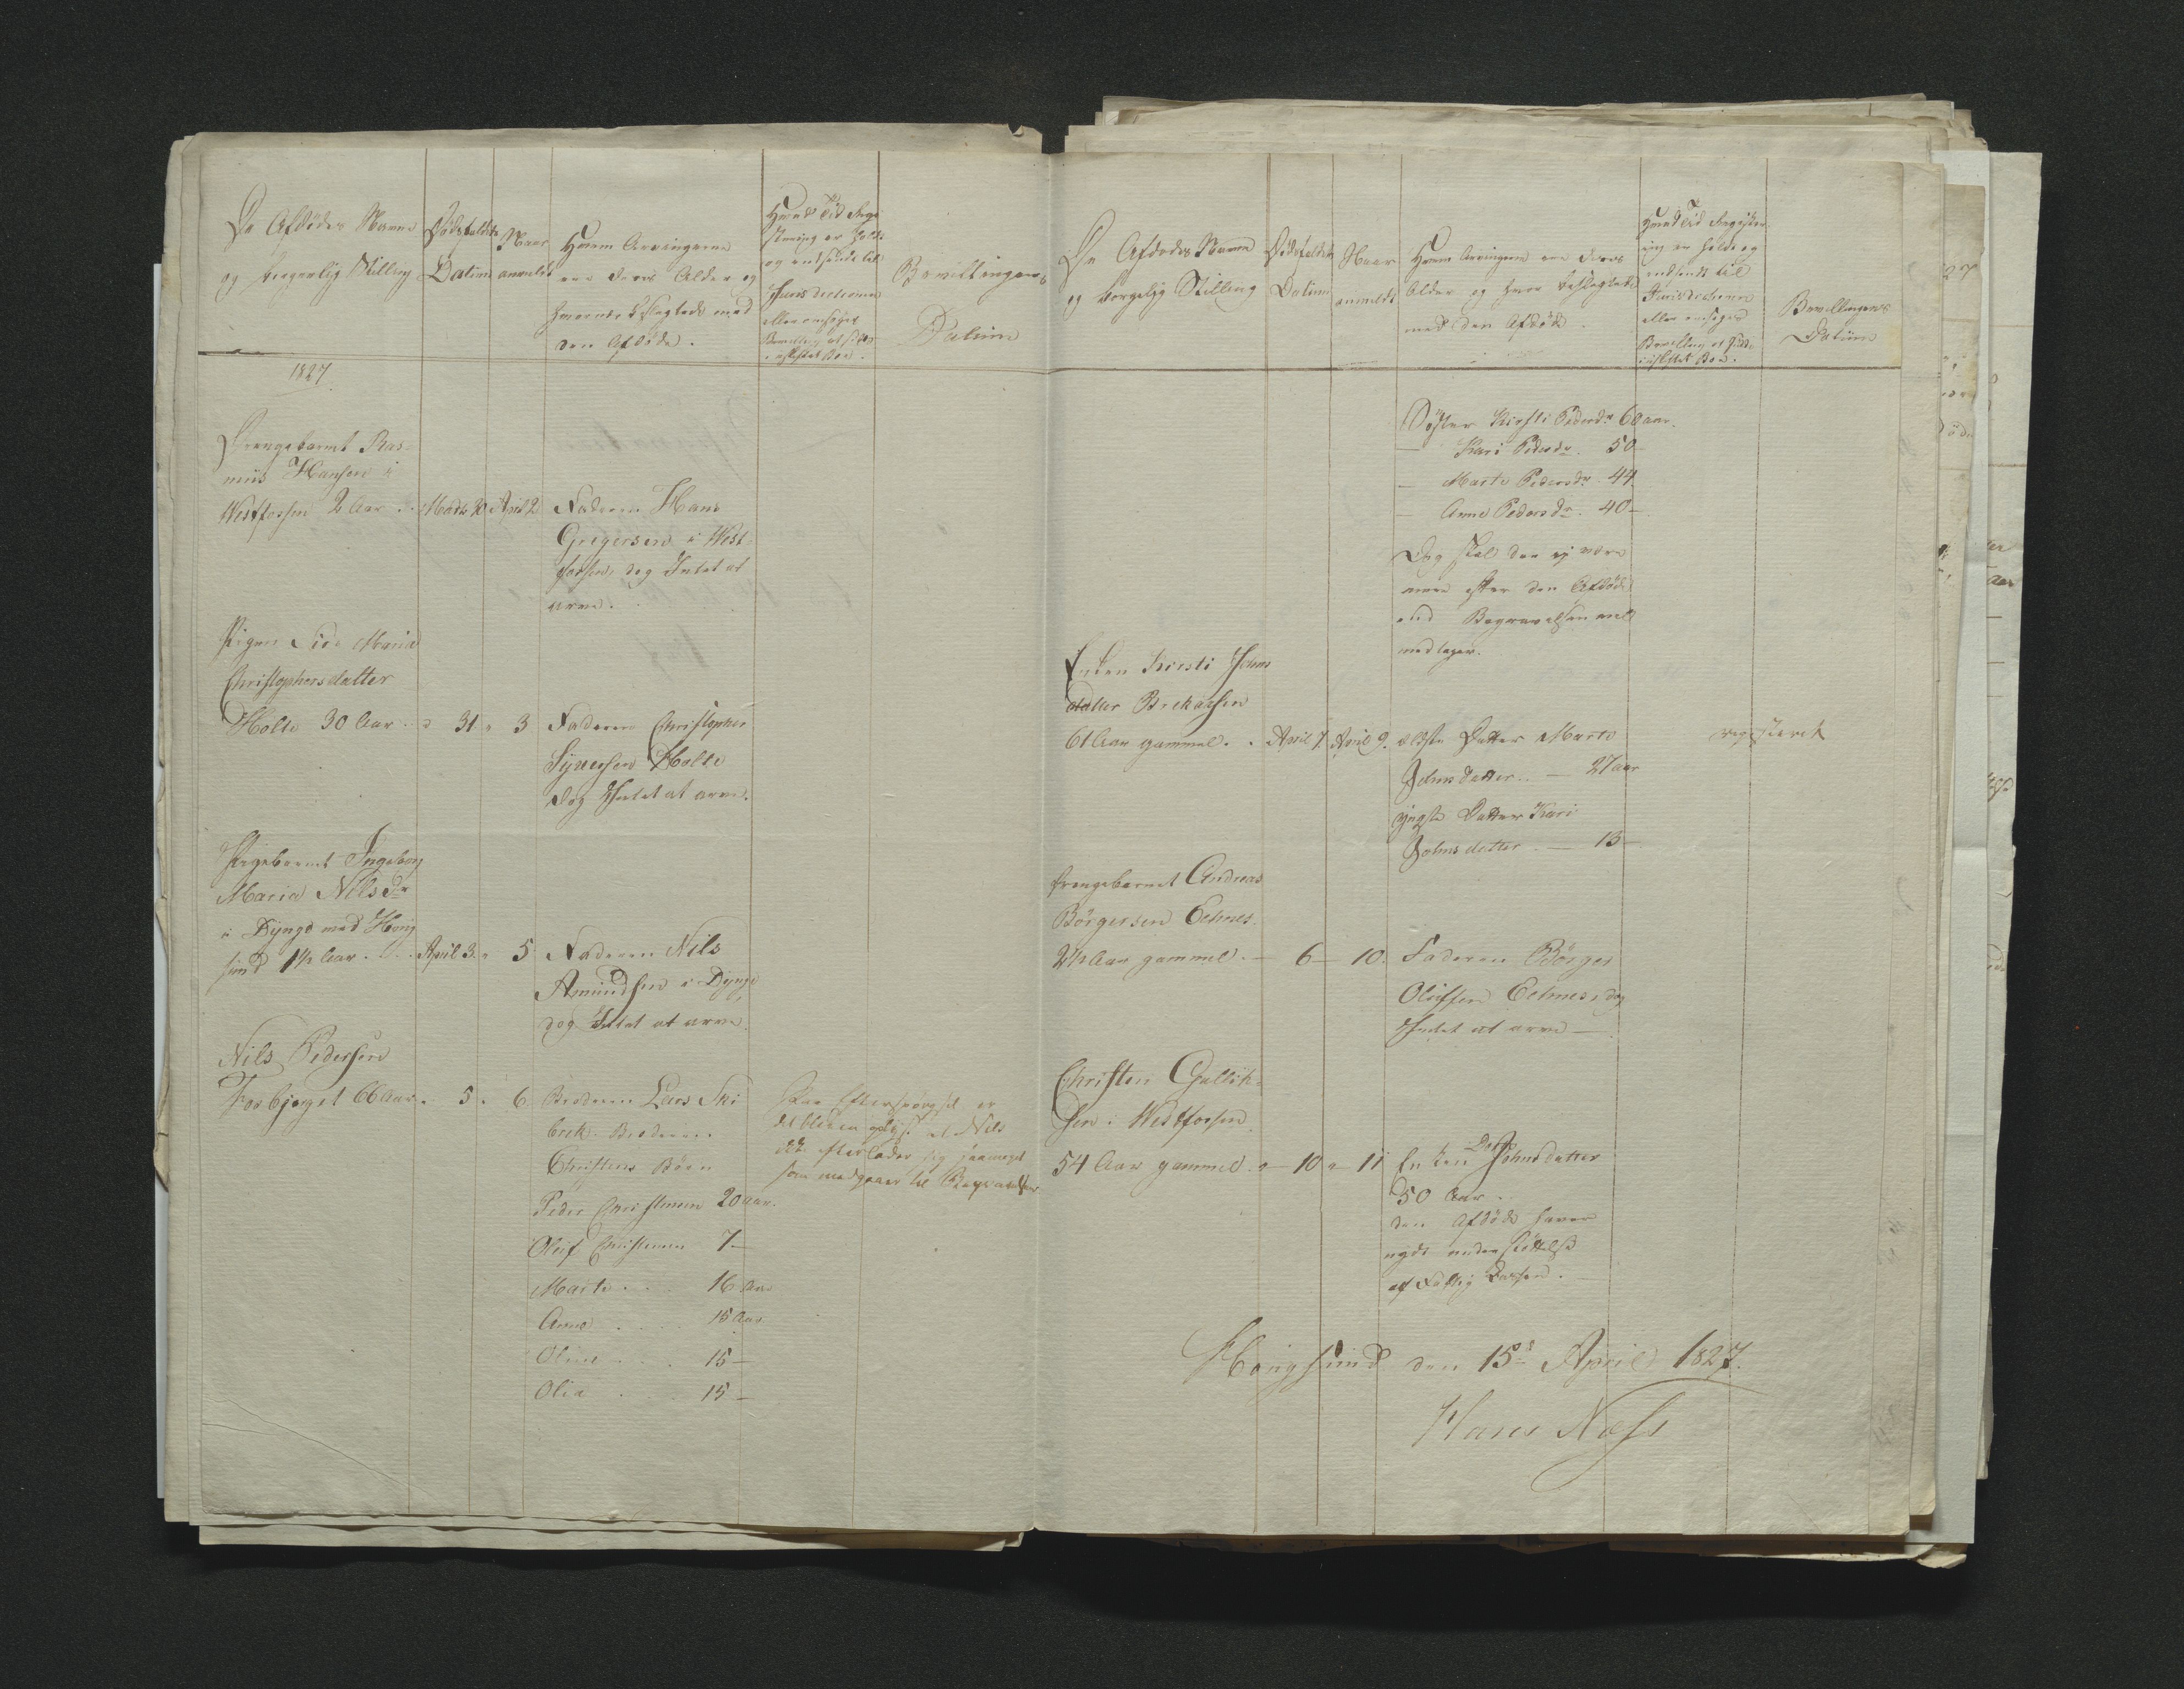 De Afdödes Navne
og borgerlig Stilling
Dödsfaldets
Datum
Naar
anmeldt
Hvem Arvingerne
ere deres Alder og
hvorvidt beslægtede med
den Afdöde.
Hvad Tid Regi
strering er holdt
og indsendt til
Jurisdictionen
eller ansögt
Bevilling at sidde
i uskiftet Boe.
Bevillingens
Datum
1827
Drengebarnet Ras-
mus Hansen i
Westfossen 2 Aar . . Marts 30 April 2
Faderen Hans
Gregersen i West-
fossen, dog Intet at
arve.
Pigen Siri Maria
Christophersdatter
Holte 30 Aar . . " 31 " 3
Faderen Christopher
Syversen Holte
dog Intet at arve.
Pigebarnet Ingeborg
Maria Nilsdr
i Dynge med Houg
sund 1 1/2 Aar . . . April 3. " 5
Faderen Nils
Amundsen i Dynge
dog Intet at arve.
Nils Pedersen
Forbjerget 66 Aar " 5 " 6
Broderen Lars Ski
brek. Broderen
Christens Börn
Peder Christensen 20 aar.
Oluf Christensen 7 —
Marte . . . 16 Aar
Anne . . . . 15 Aar
Oline . . . 15 —
Olia . . . 15 —
Paa Efterspörgsel er
det bleven oplyst at Nils
ikke efterlader sig saameget
som medgaaer til Begravelsen
De Afdödes Navne
og borgelig Stilling
Dödsfaldets
Datum
Naar
anmeldt
Hvem Arvingerne ere deres
Alder og hvor beslægtede
med den Afdöde.
Hvad Tid Registrer
ing er holdt og
indsendt til
Jurisdictionen
eller ansöges
Bevilling at sidde
i uskiftet Boe.
Bevillingens
Datum
Söster Kirsti Pedersdr 60 aar.
— Kari Pedersdr. 50 —
— Marte Pedersdr 44
— Anne Pedersdr. 40 —
Dog skal der ej være
mere efter den Afdöde
end Begravelsen vel
medtager.
Enken Kirsti Johns
datter Brekaasen
61 Aar gammel . . April 7 April 9.
ældste Datter Marte
Johnsdatter . — 27 aar
yngste Datter Kari
Johnsdatter . — 13 —
registeret
Drengebarnet Andreas
Börgersen Eeknes
2 1/2 Aar gammel. — 6 — 10.
Faderen Börger
Olufsen Eeknes, dog
Intet at arve —
Christen Gullik-
sen i Westfossen
54 Aar gammel . " 10 " 11
Enken Johnsdatter
50 Aar.
den Afdöde haver
nydt understöttelse
af Fattig Cassen. —
Hougsund den 15de April 1827.
Hans Næss